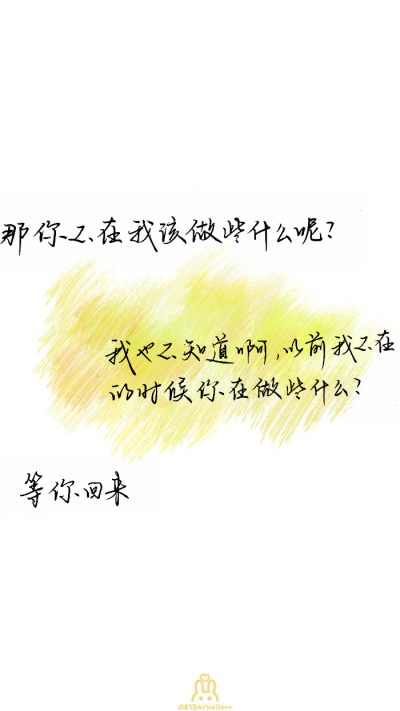 那你不在我该做些什么呢?
我也不知道啊,以前我不在
的时候你在做些什么?
等你回来